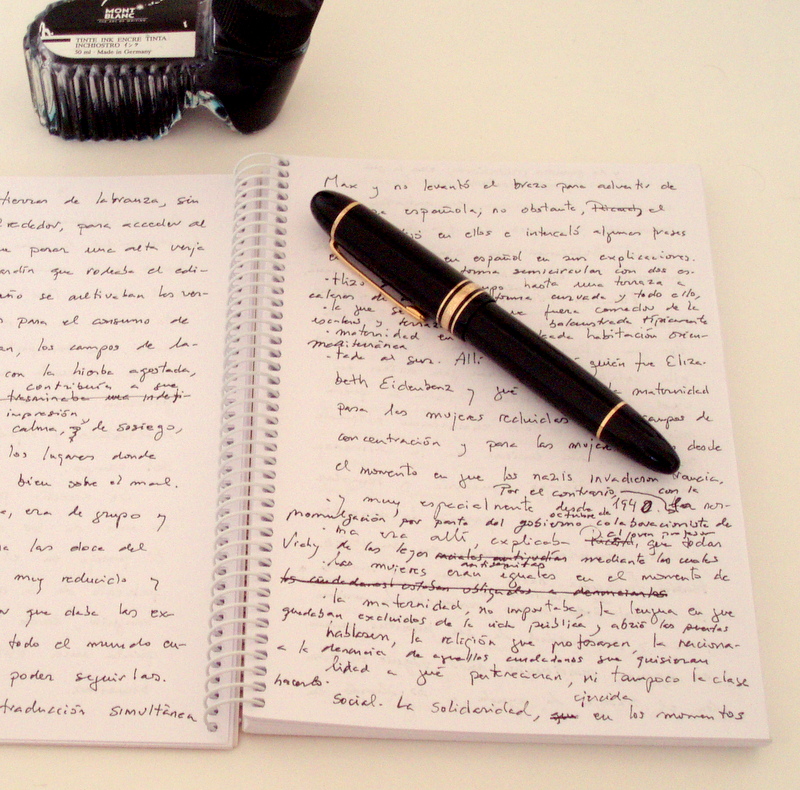 MONT
BLANC
THE ART OF WRITING
TINTE INK ENCRE TINTA
INCHIOSTRO インク
50 ml · Made in Germany
tierras de labranza, sin
rededor, para acceder al
a parar una alta verja
ardín que rodeaba el edi-
año se cultivaban las ver-
s para el consumo de
an, los campos de la-
con la hierba agostada,
contribuía a esa
trasminaba una indefi-
impresión
calma, y de sosiego,
los lugares donde
bien sobre el mal.
e, era de grupo y
a las doce del
muy reducido y
or que daba las ex-
todo el mundo en-
poder seguirlas.
traducción simultánea
Max y no levantó el brazo para advertir de
española; no obstante, el
en ellos e intercaló algunas frases
en español en sus explicaciones.
-Hizo forma semicircular con dos es-
hasta una terraza a
caleras de forma curvada y todo ello,
-la que se fuera comedor de la
balaustrada típicamente
-maternidad en habitación orien-
mediterránea
-tada al sur. Allí quién fue Eliza-
beth Eidenbenz y qué maternidad
para las mujeres recluidas campos de
concentración y para las desde
el momento en que los nazis invadieron Francia,
Por el contrario, con la
-y muy especialmente desde 1940.
octubre de
promulgación por parte del gobierno colaboracionista de
-ma era allí, explicaba que todas
Vichy de las leyes raciales antijudías mediante las cuales
antisemitas
-las mujeres eran iguales en el momento de
los ciudadanos estaban obligados a denunciarlos
-la maternidad, no importaba, la lengua en que
quedaban excluidos de la vida pública y abrió las puertas
hablasen, la religión que profesasen, la naciona-
a la denuncia de aquellos ciudadanos que quisieran
lidad a que pertenecieran, ni tampoco la clase
hacerlo.
ejercida
social. La solidaridad, que en los momentos